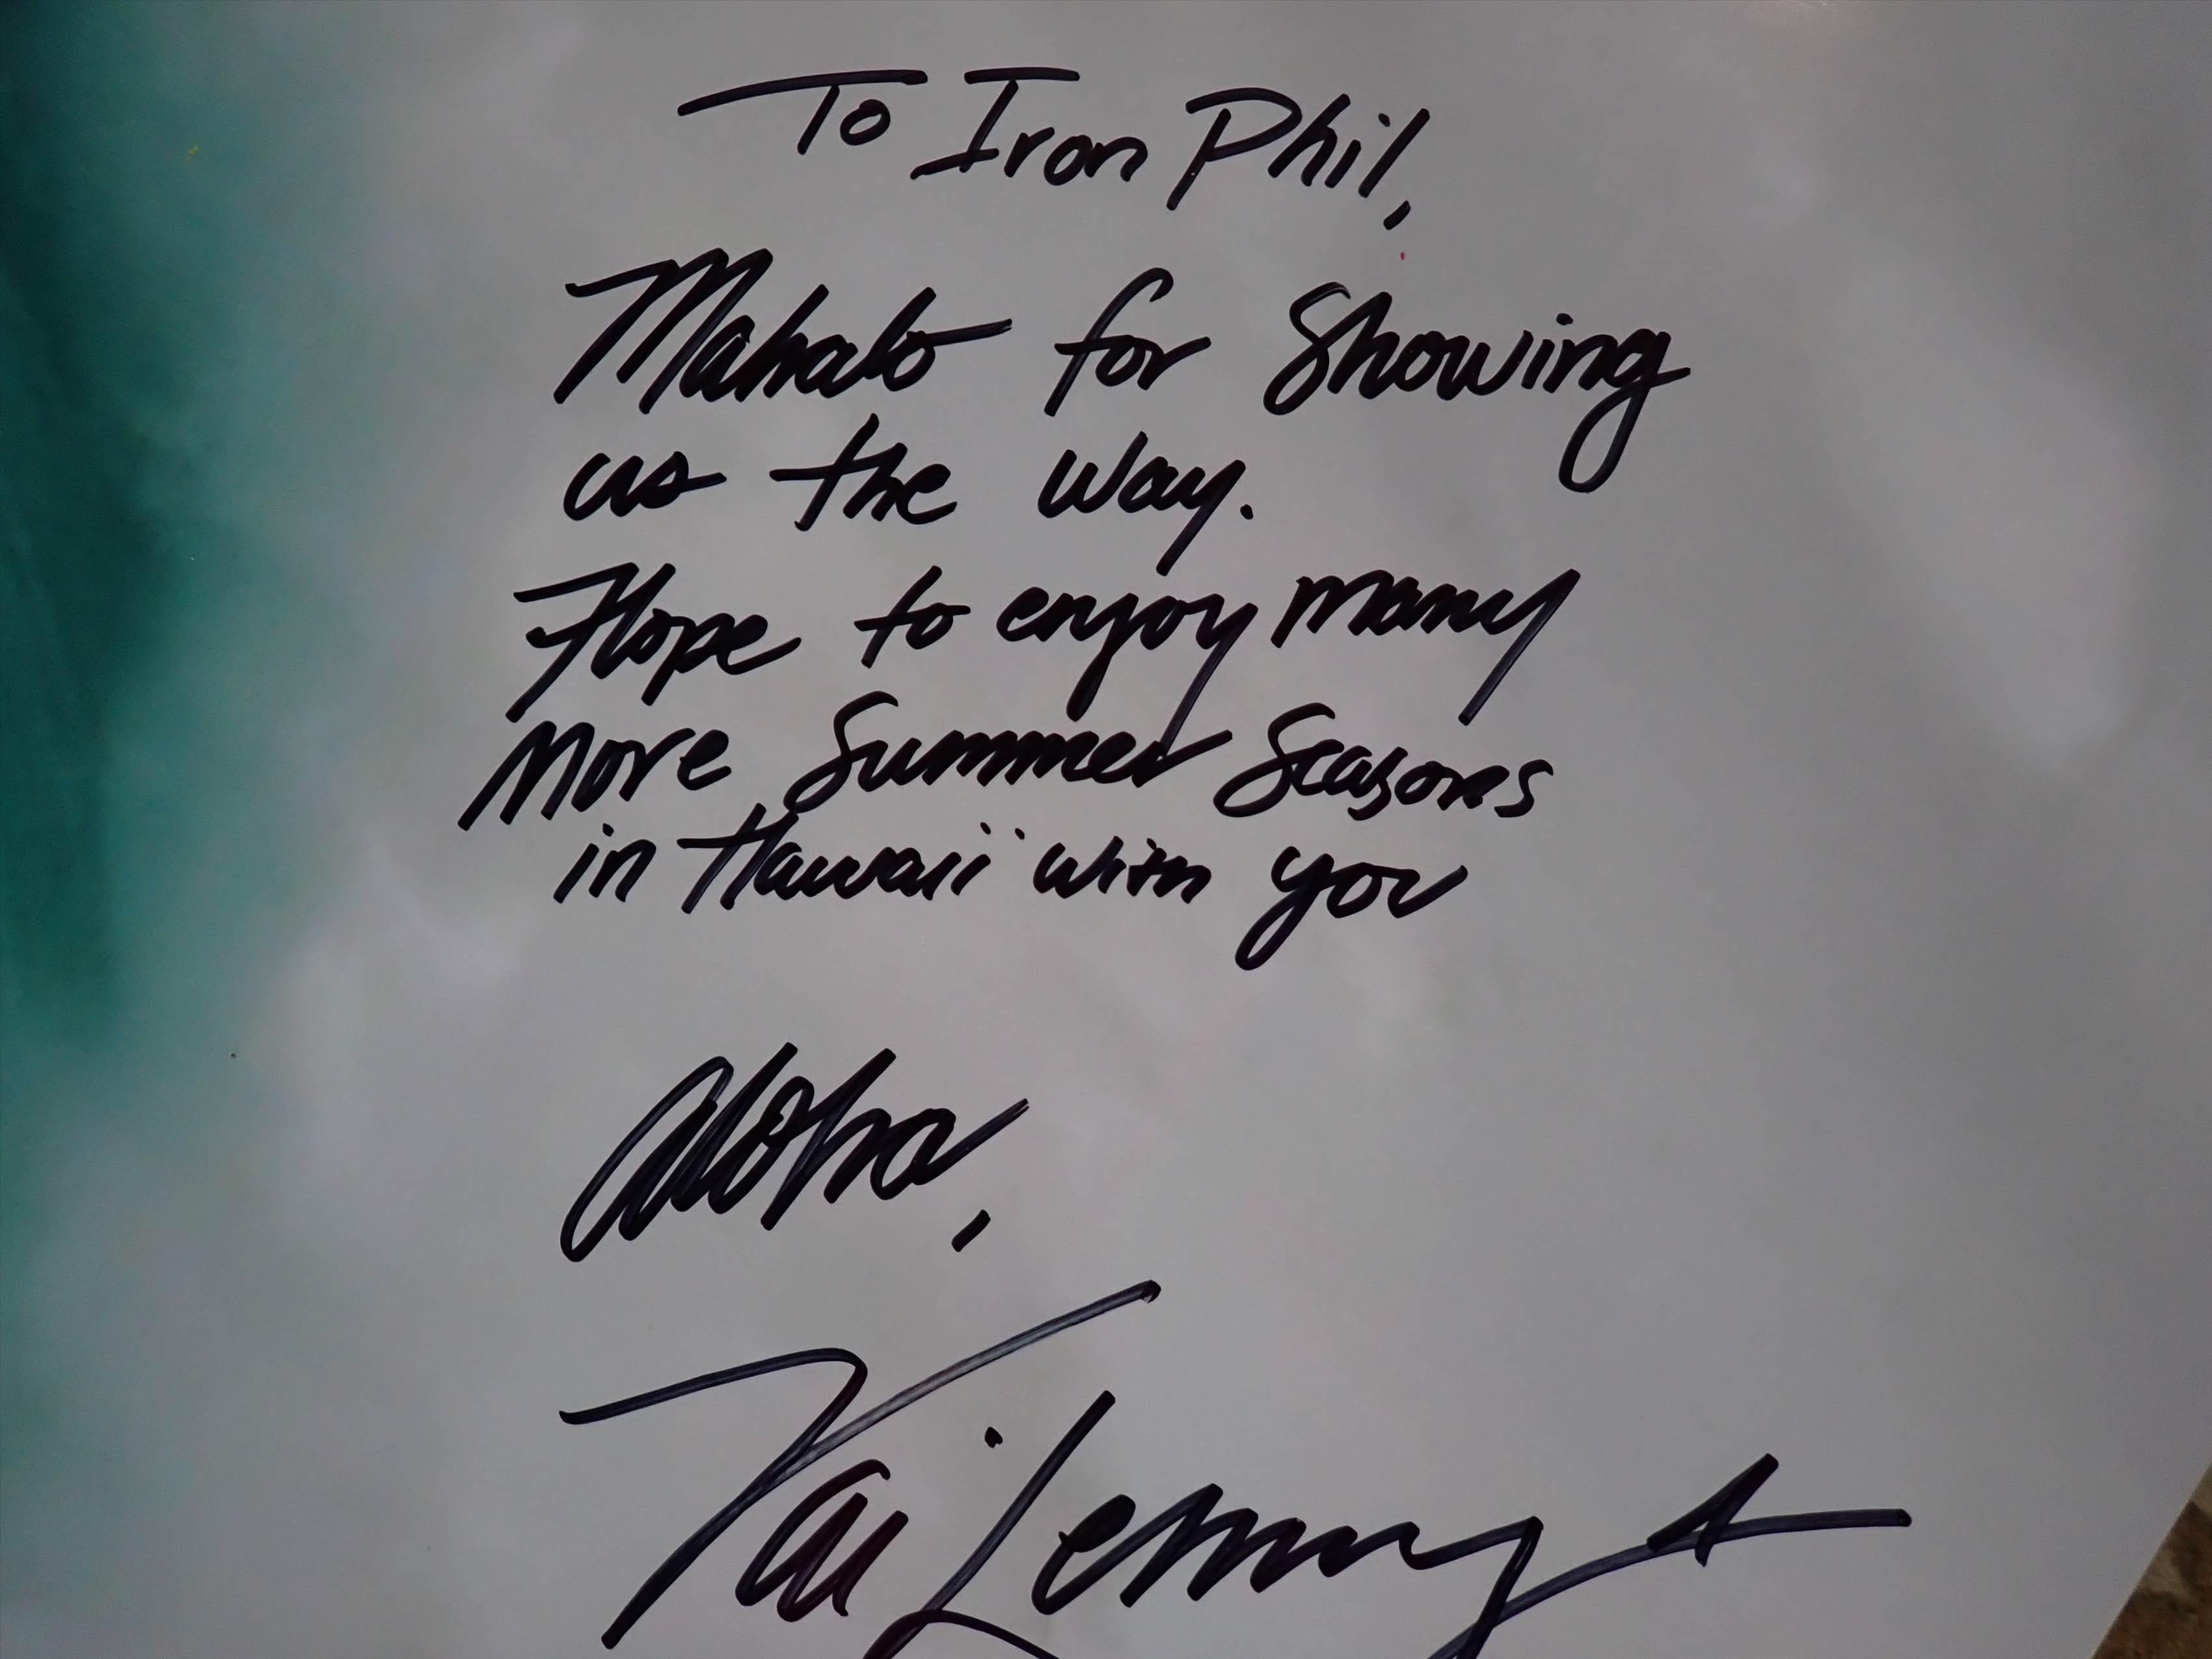 To Iron Phil,
Mahalo for Showing
us the way.
Hope to enjoy many
More Summer Seasons
in Hawaii with you
Aloha,
Kai Lenny